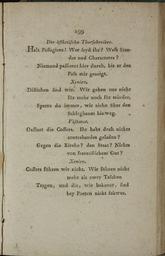 259
Der ästhetische Thorschreiber.
Halt Passagiere! Wer seyd ihr? Wess Stan-
des und Characteres?
Niemand passieret hier durch, bis er den
Pass mir gezeigt.
Xenien.
Distichen sind wir. Wir geben uns nicht
für mehr noch für minder,
Sperre du immer, wir ziehn über den
Schlagbaum hinweg.
Visitator.
Oeffnet die Coffers. Ihr habt doch nichts
contrebandes geladen?
Gegen die Kirche? den Staat? Nichts
von französischem Gut?
Xenien.
Coffers führen wir nicht. Wir führen nicht
mehr als zwey Taschen
Tragen, und die, wie bekannt, sind
bey Poeten nicht schwer.